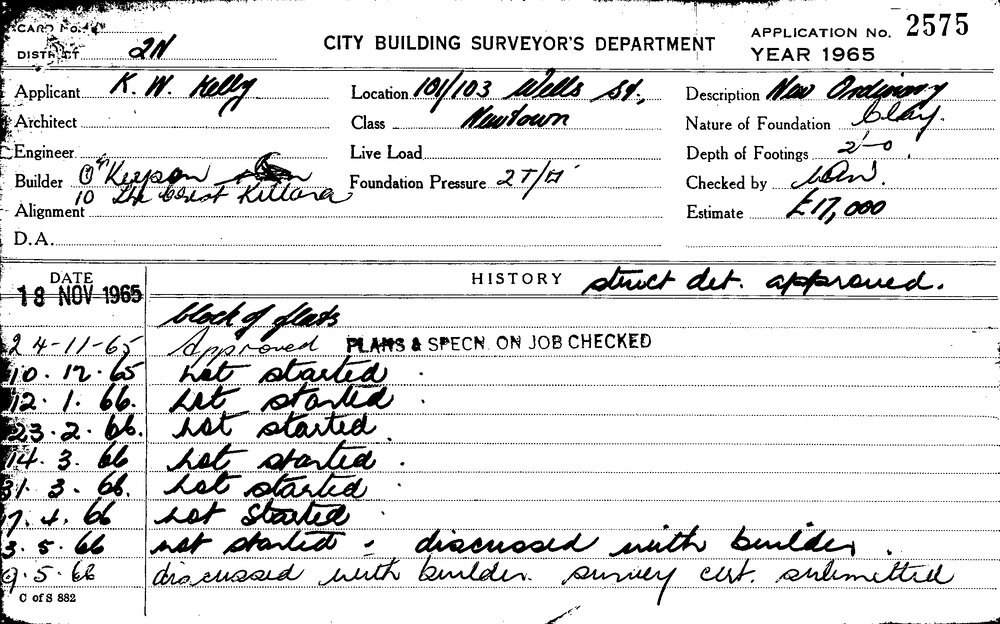 CARD No.
DISTRICT 2N
CITY BUILDING SURVEYOR'S DEPARTMENT
APPLICATION No. 2575
YEAR 1965
Applicant K. W. Kelly
Location 101/103 Wells St.,
Description New Ordinary
Architect
Class Newtown
Nature of Foundation Clay.
Engineer
Live Load
Depth of Footings 2'-0
Builder
10 The Crest Killara
Foundation Pressure 2T/□'
Checked by
Alignment
Estimate £17,000
D.A.
DATE
HISTORY struct det. approved.
18 NOV 1965
block of flats
24-11-65 Approved PLANS & SPECN. ON JOB CHECKED
10.12.65 not started .
12.1.66. not started .
23.2.66. not started .
14.3.66 not started .
31.3.66. not started .
7.4.66 not started .
3.5.66 not started - discussed with builder.
9.5.66 discussed with builder. survey cert. submitted
C of S 882